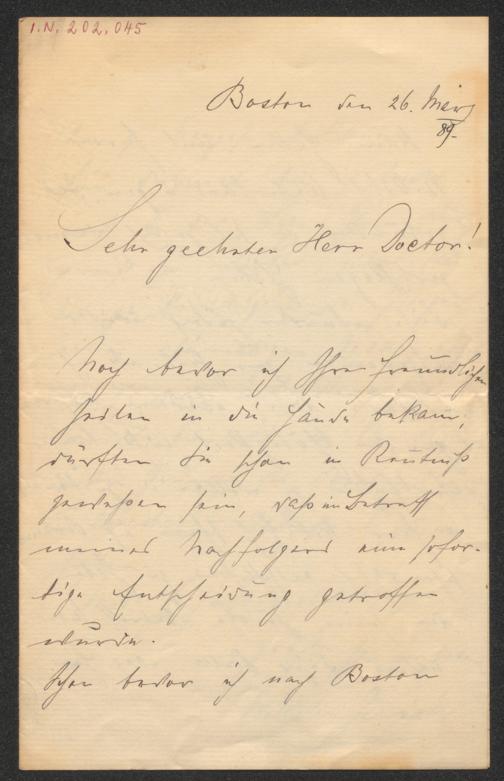 I.N. 202.045
Boston den 26. März
89.
Sehr geehrter Herr Doctor!
Noch bevor ich Ihre freundlichen
Zeilen in die Hände bekam,
dürften Sie schon in Kentniß
gewesen sein, daß im Betreff
meines Nachfolgers eine sofor-
tige Entscheidung getroffen
wurde.
Schon bevor ich nach Boston